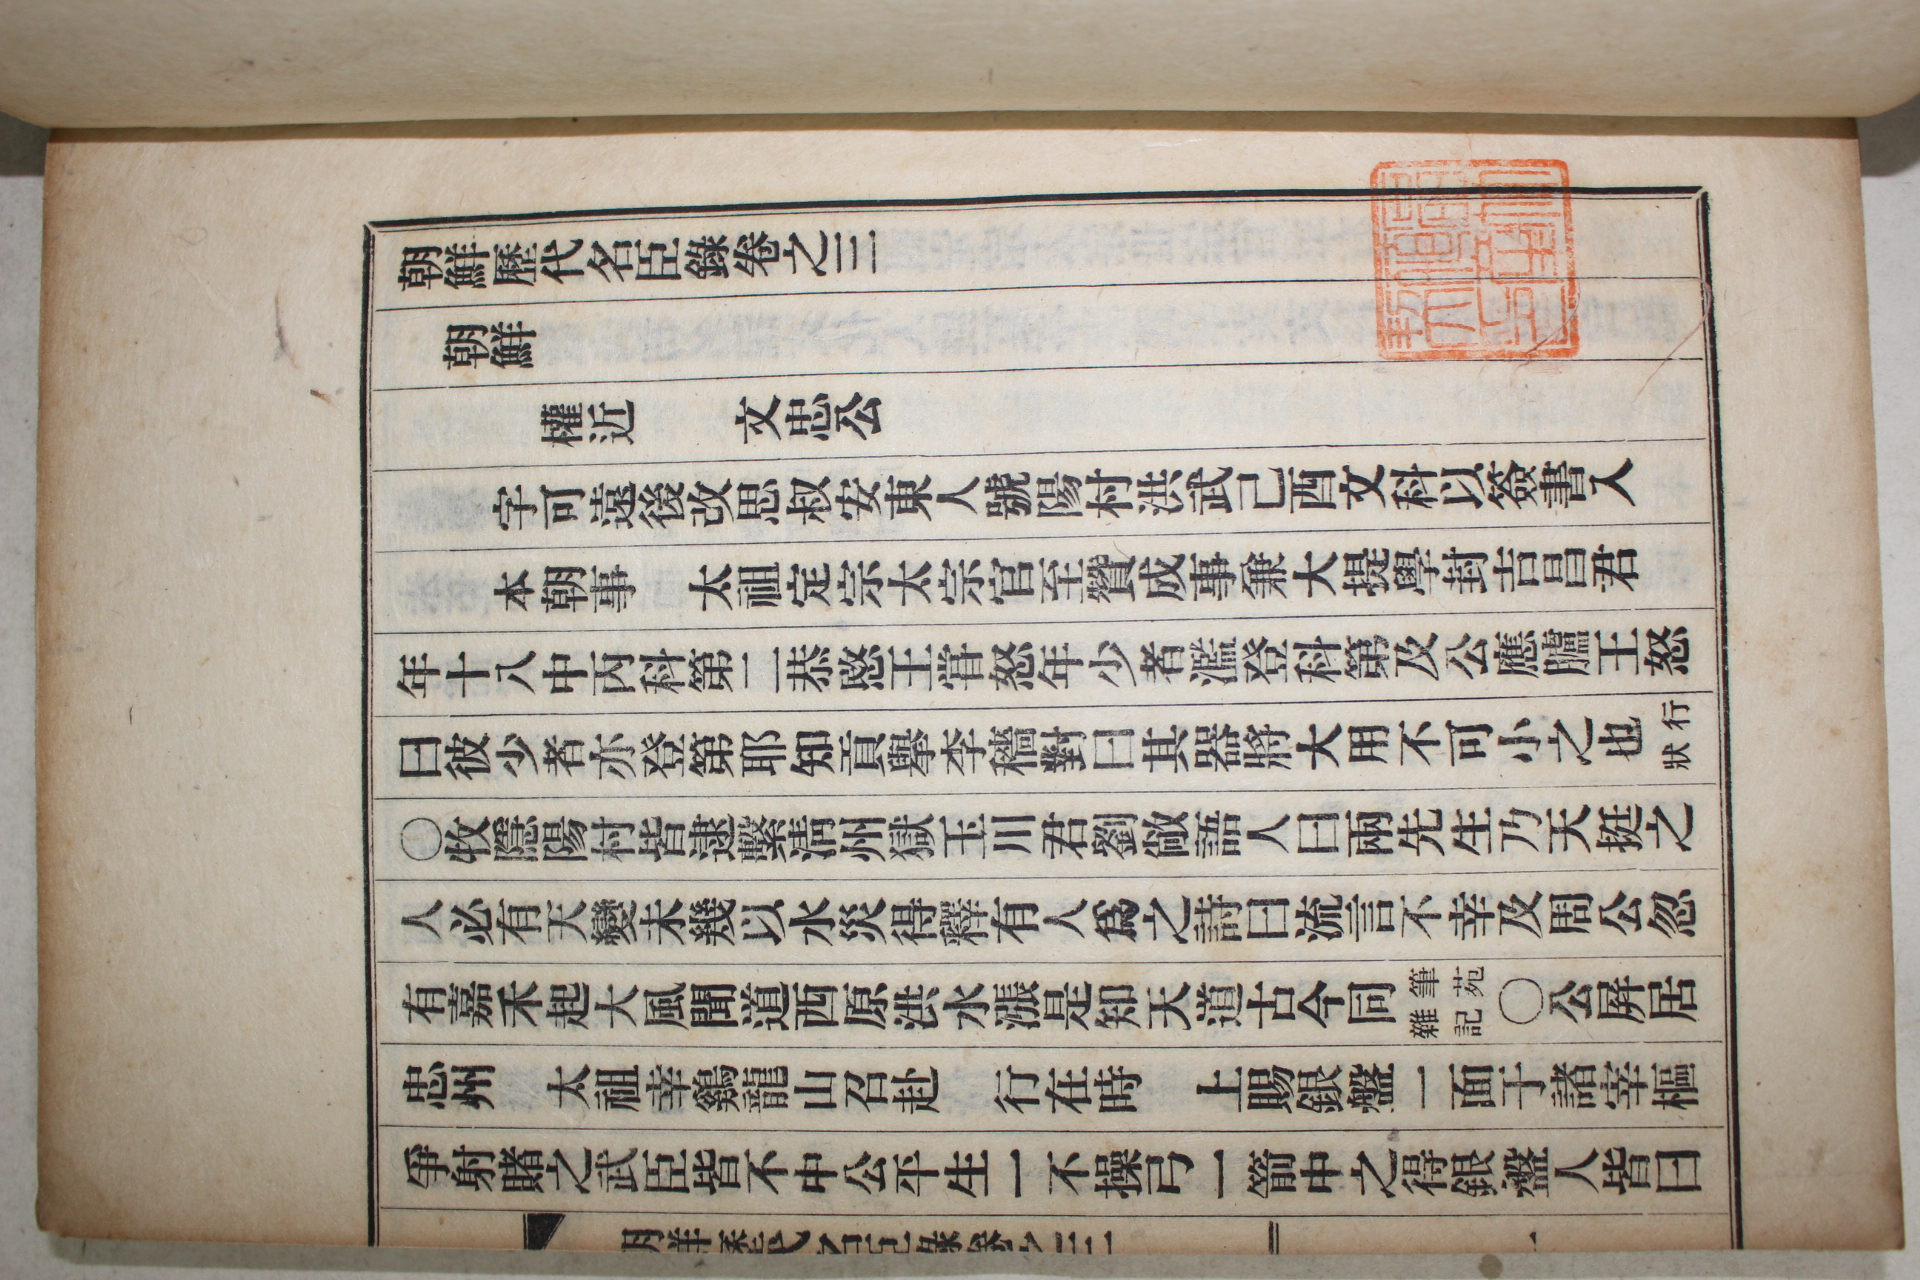 朝鮮歷代名臣錄卷之三
朝鮮
權近 文忠公
字可遠後改思叔安東人號陽村洪武己酉文科以簽書入
本朝事 太祖定宗太宗官至贊成事兼大提學封吉昌君
年十八中丙科第二恭愍王嘗怒年少者濫登科第及公應臚王怒
曰彼少者亦登第耶知貢擧李穡對曰其器將大用不可小之也行狀
○牧隱陽村皆逮繫淸州獄玉川君劉敞語人曰兩先生乃天挺之
人必有天變未幾以水災得釋有人爲之詩曰流言不幸及周公忽
有嘉禾起大風聞道西原洪水漲是知天道古今同筆苑雜記○公屛居
忠州 太祖幸鷄龍山召赴 行在時 上賜銀盤一面于諸宰樞
爭射賭之武臣皆不中公平生一不操弓一箭中之得銀盤人皆曰
朝鮮歷代名臣錄卷之三 一